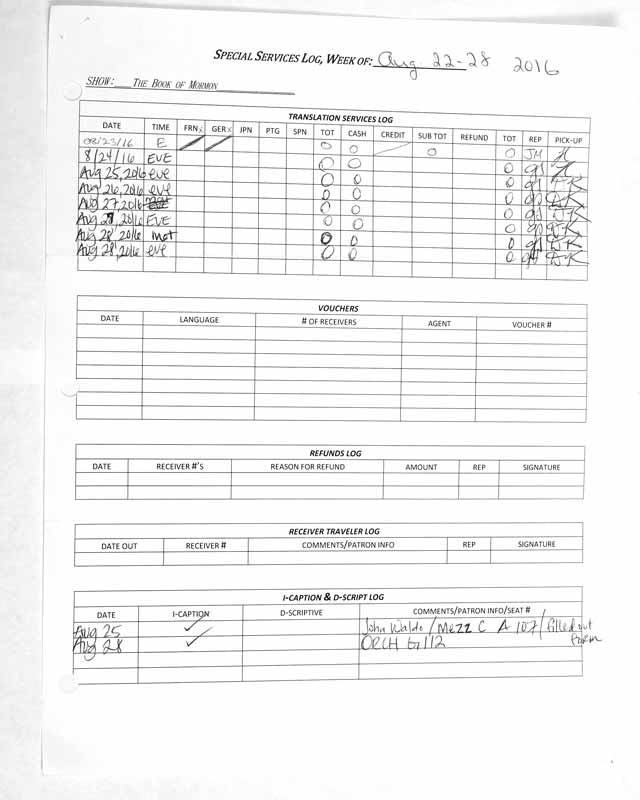 SPECIAL SERVICES LOG, WEEK OF: Aug. 22-28 2016
SHOW: THE BOOK OF MORMON
TRANSLATION SERVICES LOG
DATE TIME FRN GER JPN PTG SPN TOT CASH CREDIT SUB TOT REFUND TOT REP PICK-UP
08/23/16 E 0 0 0 0 JM
8/24/16 EVE 0 0 0
Aug 25, 2016 eve 0 0 0
Aug 26, 2016 eve 0 0 0 DK
Aug 27, 2016 0 0 0 DK
Aug 27, 2016 EVE 0 0 0 DK
Aug 28 2016 mat 0 0 0 DK
Aug 28, 2016 eve 0 0 0 DK
VOUCHERS
DATE LANGUAGE # OF RECEIVERS AGENT VOUCHER #
REFUNDS LOG
DATE RECEIVER #'S REASON FOR REFUND AMOUNT REP SIGNATURE
RECEIVER TRAVELER LOG
DATE OUT RECEIVER # COMMENTS/PATRON INFO REP SIGNATURE
I-CAPTION & D-SCRIPT LOG
DATE I-CAPTION D-SCRIPTIVE COMMENTS/PATRON INFO/SEAT #
Aug 25 ✓ John Waldo / Mezz C A 107 / filled out form
Aug 28 ✓ ORCH 112